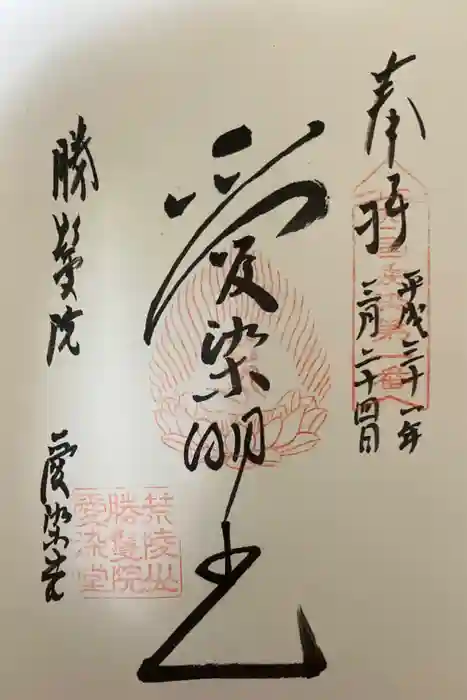 奉拝
平成二十一年
三月二十四日
愛染明王
勝鬘院
愛染堂
荒陵山
勝鬘院
愛染堂